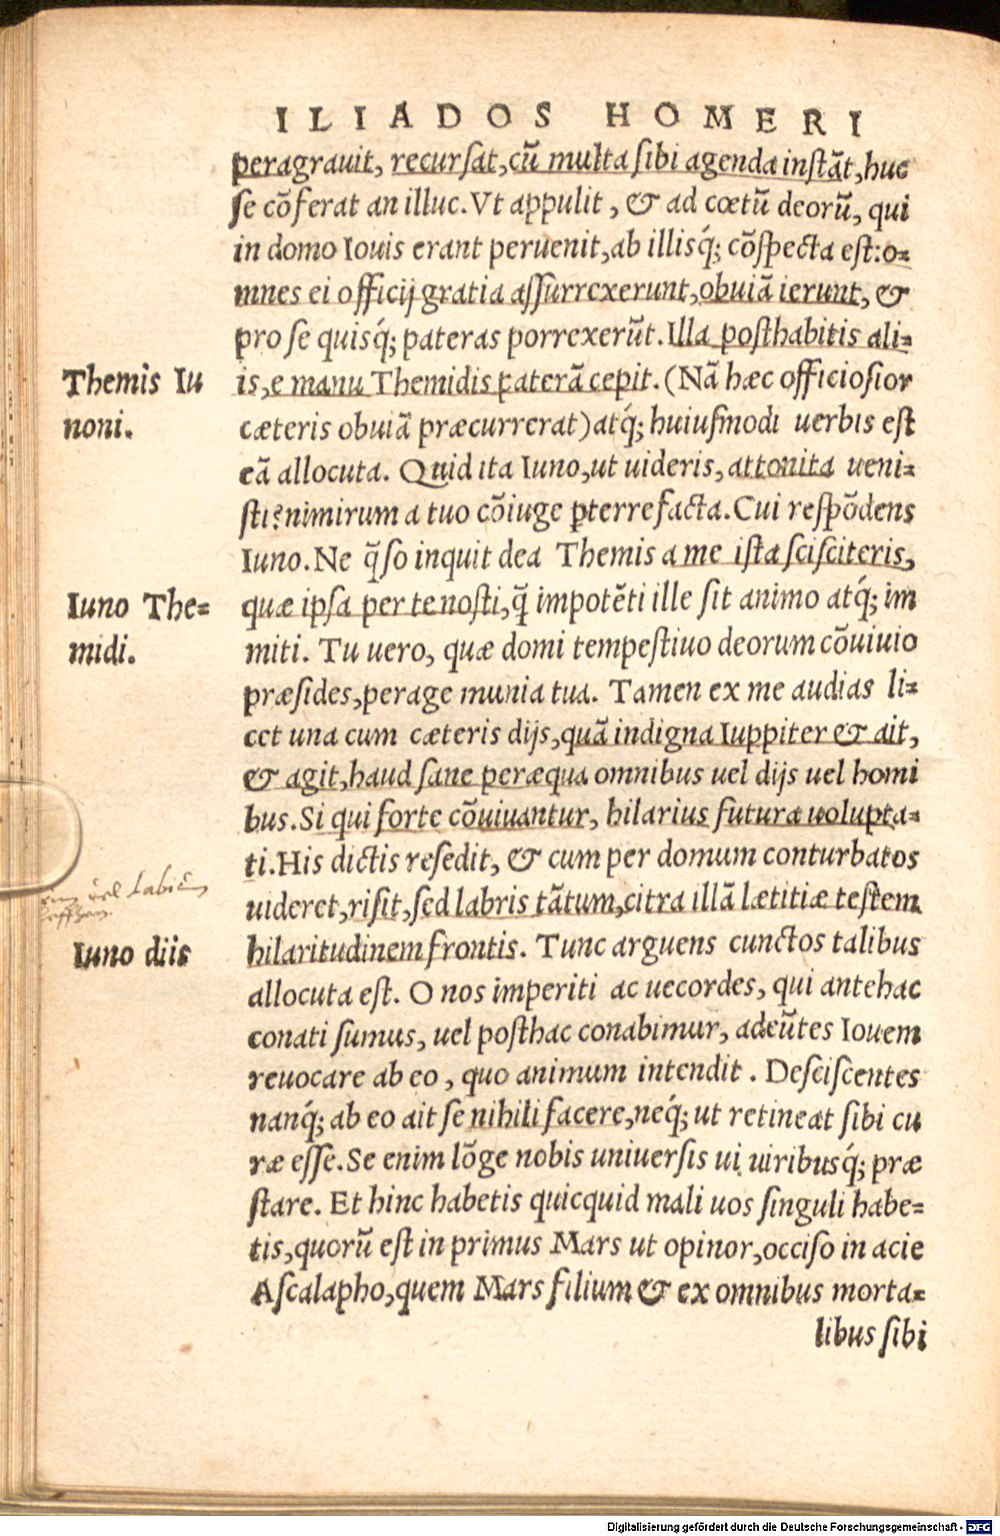 ILIADOS HOMERI
peragrauit, recursat, cũ multa sibi agenda instãt, huc
se cõferat an illuc. Vt appulit, & ad cœtũ deorũ, qui
in domo Iouis erant peruenit, ab illisq́; cõspecta est: o=
mnes ei officij gratia assurrexerunt, obuiã ierunt, &
pro se quisq́; pateras porrexerũt. Illa posthabitis ali=
Themis Iu
noni.
is, e manu Themidis paterã cepit. (Nã hæc officiosior
cæteris obuiã præcurrerat) atq́; huiusmodi uerbis est
eã allocuta. Quid ita Iuno, ut uideris, attonita ueni=
sti? nimirum a tuo cõiuge ꝑterrefacta. Cui respõdens
Iuno. Ne q̃so inquit dea Themis a me ista sciscíteris,
Iuno The=
midi.
quæ ipsa per te nosti, q̃ impotẽti ille sit animo atq́; im
miti. Tu uero, quæ domi tempestiuo deorum cõuiuio
præsides, perage munia tua. Tamen ex me audias li=
cet una cum cæteris dijs, quã indigna Iuppiter & ait,
& agit, haud sane peræqua omnibus uel dijs uel homi
bus. Si qui forte cõuiuantur, hilarius futuræ uolupta=
ti. His dictis resedit, & cum per domum conturbatos
uel Labiũ
uideret, risit, sed labris tãtum, citra illã lætitiæ testem
Iuno diis
hilaritudinem frontis. Tunc arguens cunctos talibus
allocuta est. O nos imperiti ac uecordes, qui antehac
conati sumus, uel posthac conabimur, adeũtes Iouem
reuocare ab eo, quo animum intendit. Desciscentes
nanq́; ab eo ait se nihili facere, neq́; ut retineat sibi cu
ræ esse. Se enim lõge nobis uniuersis ui uiribusq́; præ
stare. Et hinc habetis quicquid mali uos singuli habe=
tis, quorũ est in primus Mars ut opinor, occiso in acie
Ascalapho, quem Mars filium & ex omnibus morta=
libus sibi
Digitalisierung gefördert durch die Deutsche Forschungsgemeinschaft - DFG